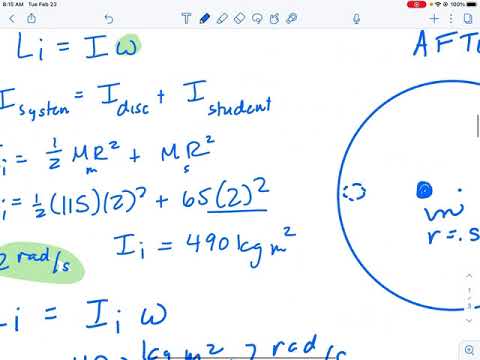 8:15 AM Tue Feb 23
100%
Li = I ω
AFT
I system = I disc + I student
i = 1/2 M_m R² + M_s R²
i = 1/2 (115)(2)² + 65(2)²
2 rad/s
I i = 490 kg m²
r = .5
Li = I i ω
kg m² rad/s